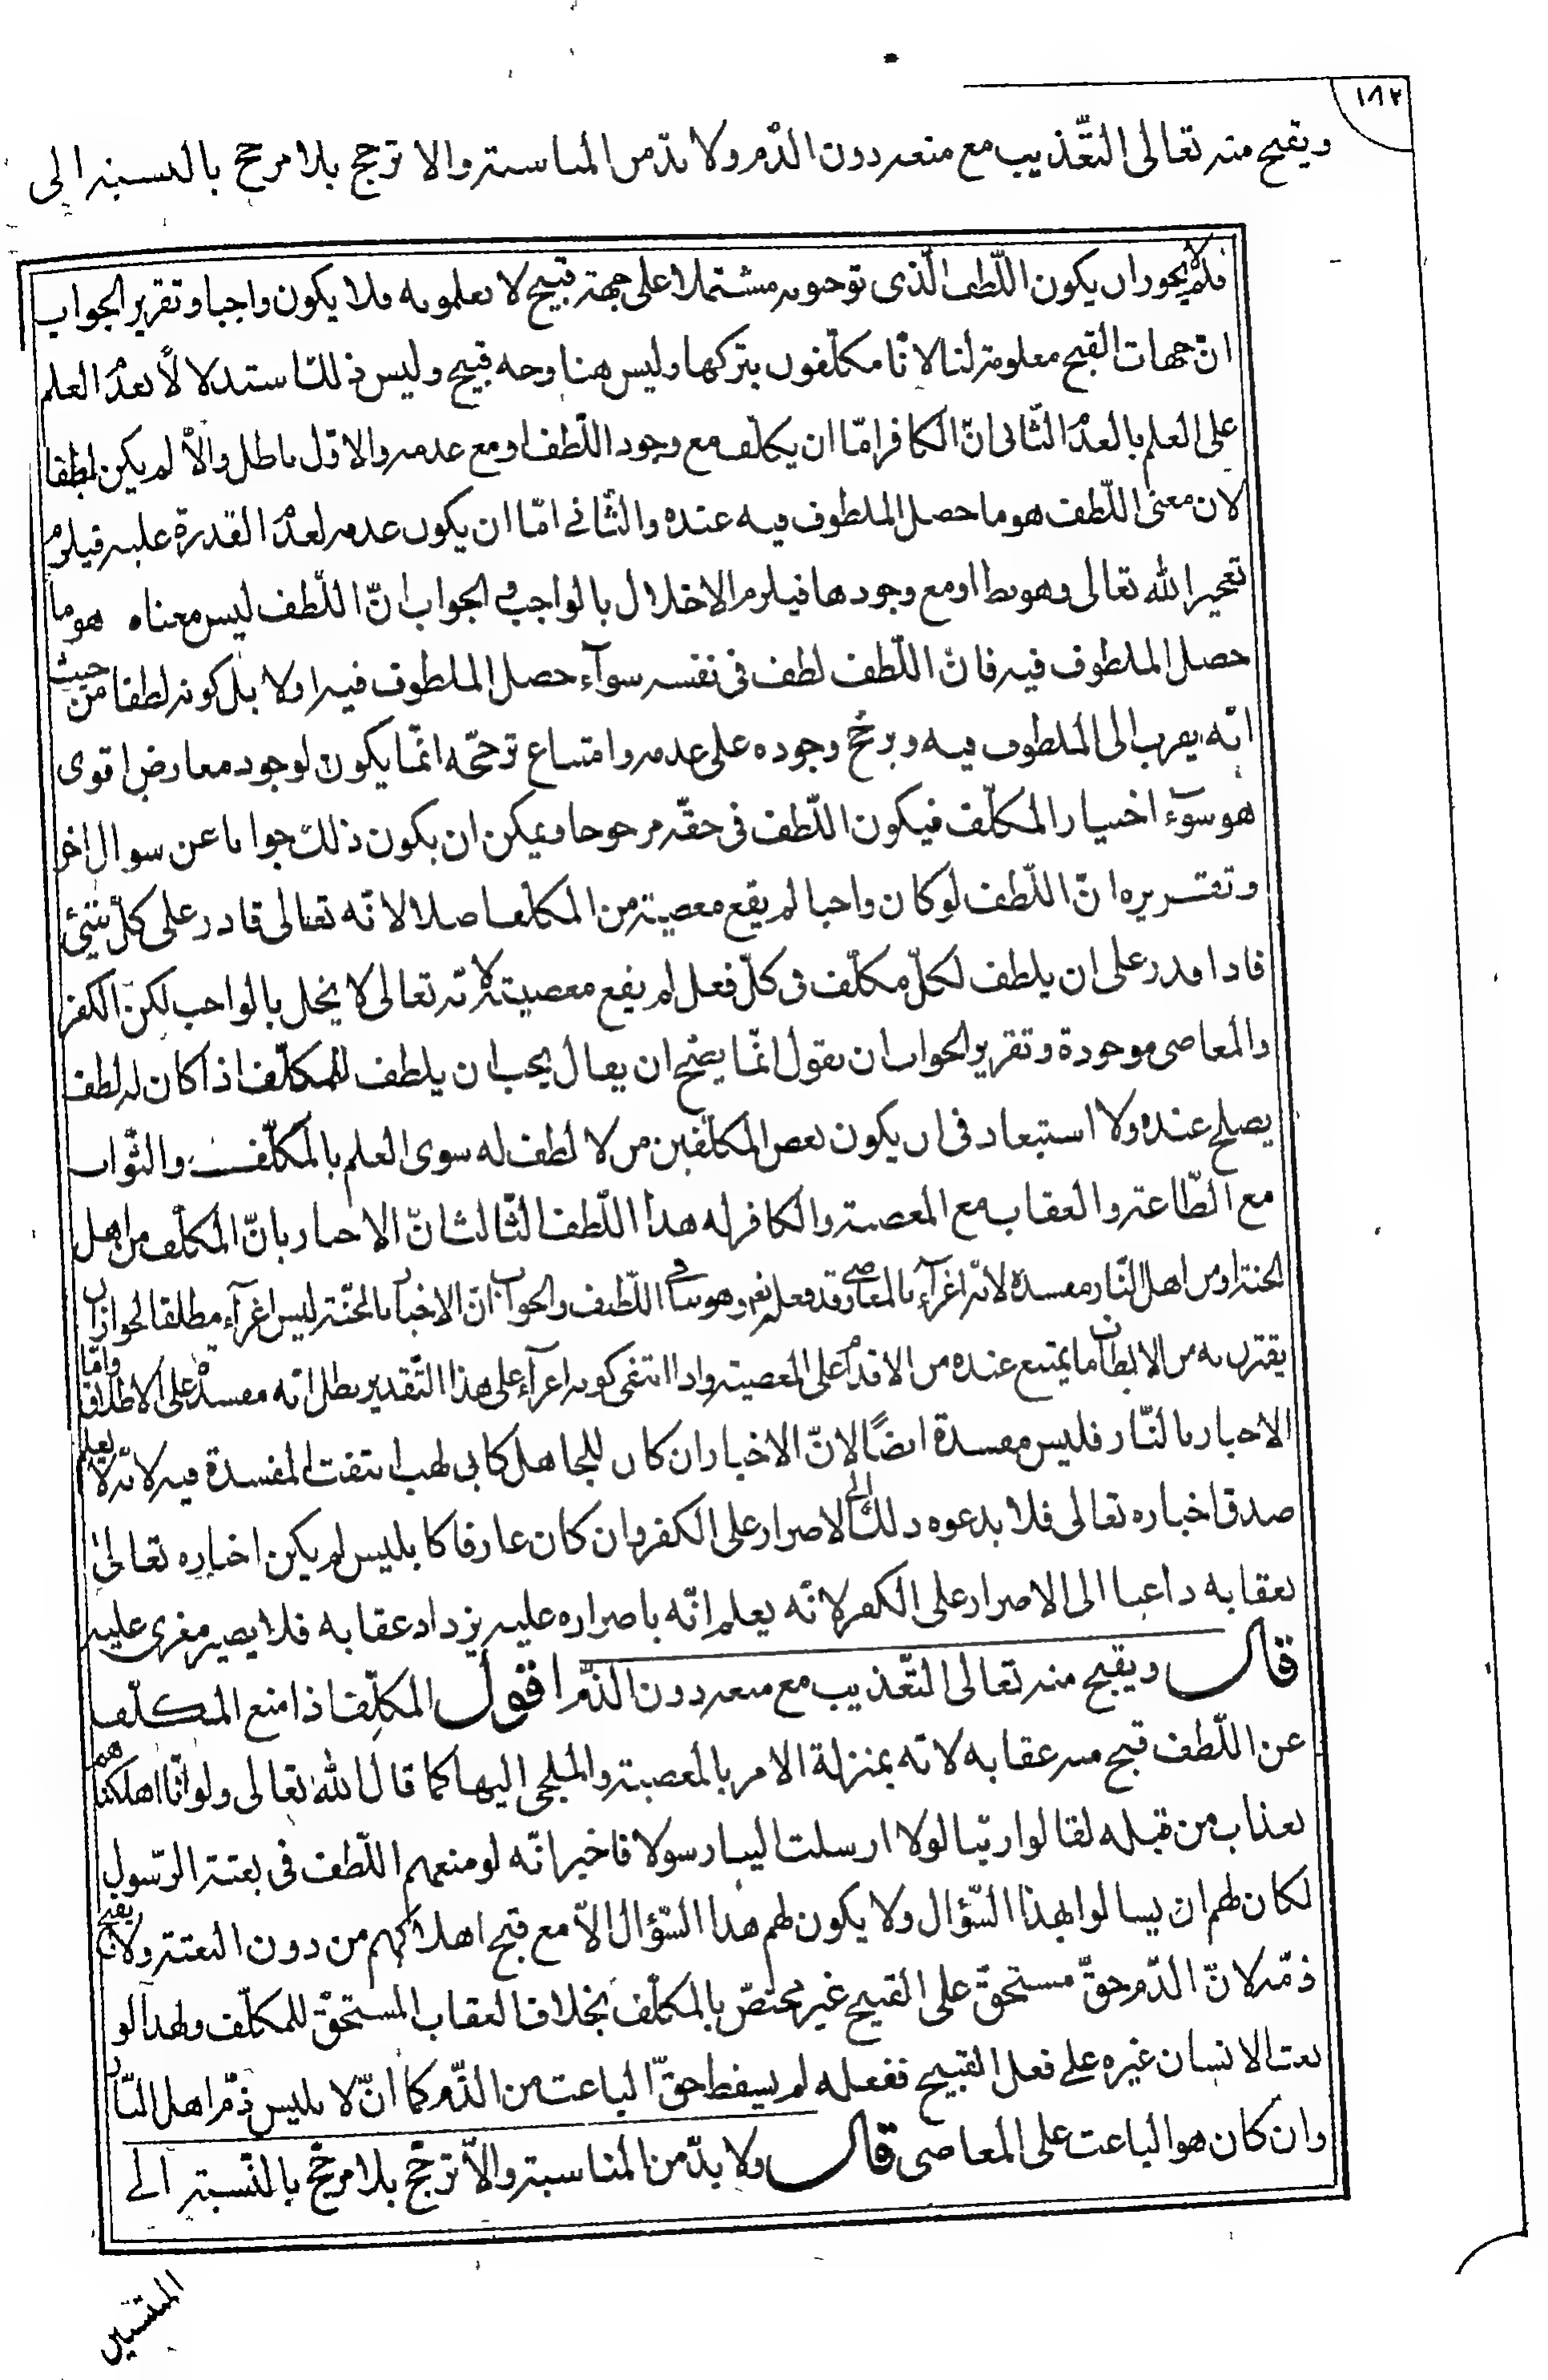 ١٨٢
ويقبح منه تعالى التعذيب مع منعه دون الذم ولا بد من المناسبة والا ترجح بلا مرجح بالنسبة الى
فلم لا يجوز ان يكون اللطف الذى توجبونه مشتملا على جهة قبيح لا تعلمونه فلا يكون واجبا وتقرير الجواب
ان جهات القبح معلومة لنا لانا مكلفون بتركها وليس هنا وجه قبيح وليس ذلك استدلالا بعدم العلم
على العلم بالعدم الثانى ان الكافر امّا ان يكلف مع وجود اللطف او مع عدمه والاول باطل والا لم يكن لطفا
لان معنى اللطف هو ما حصل الملطوف فيه عنده والثانى امّا ان يكون عدمه لعدم القدرة عليه فيلزم
تعجيز الله تعالى وهو بط او مع وجودها فيلزم الاخلال بالواجب والجواب انّ اللطف ليس معناه هو ما
حصل الملطوف فيه فانّ اللطف لطف فى نفسه سوآء حصل الملطوف فيه او لا بل كونه لطفا من حيث
انه يقرب الى الملطوف فيه ويرجح وجوده على عدمه وامتناع ترجحه انما يكون لوجود معارض اقوى
هو سوء اختيار المكلف فيكون اللطف فى حقه مرجوحا ويمكن ان يكون ذلك جوابا عن سوال اخر
وتقريره انّ اللطف لو كان واجبا لم يقع معصية من المكلف اصلا لانه تعالى قادر على كل شئ
فاذا قدر على ان يلطف لكل مكلف فى كل فعل لم يقع معصية لانه تعالى لا يخل بالواجب لكن الكفر
والمعاصى موجودة وتقرير الجواب ان نقول انما يصح ان يقال يجب ان يلطف للمكلف اذا كان له لطف
يصلح عنده ولا استبعاد فى ان يكون بعض المكلفين من لا لطف له سوى العلم بالمكلف والثواب
مع الطاعة والعقاب مع المعصية والكافر له هذا اللطف الثالث انّ الاخبار بانّ المكلف من اهل
الجنة او من اهل النار مفسدة لانه اغرآء بالمعاصى وقد فعله تع وهو ينافى اللطف والجواب انّ الاخبار بالجنة ليس اغرآء مطلقا لجواز ان
يقترن به من الالطاف ما يمتنع عنده من الاقدام على المعصية واذا انتفى كونه اغرآء على هذا التقدير بطل انه مفسدة على الاطلاق وامّا
الاخبار بالنار فليس مفسدة ايضًا لانّ الاخبار ان كان للجاهل كابى لهب انتفت المفسدة فيه لانه لا يعلم
صدق اخباره تعالى فلا يدعوه ذلك الى الاصرار على الكفر وان كان عارفا كابليس لم يكن اخباره تعالى
بعقابه داعيا الى الاصرار على الكفر لانه يعلم انه باصراره عليه يزداد عقابه فلا يصير مغرى عليه
قال ويقبح منه تعالى التعذيب مع منعه دون الذم اقول المكلِّف اذا منع المكلَّف
عن اللطف قبح منه عقابه لانه بمنزلة الامر بالمعصية والملجى اليها كما قال الله تعالى ولو انّا اهلكناهم
بعذاب من قبله لقالوا ربنا لولا ارسلت الينا رسولا فاخبر انه لو منعهم اللطف فى بعثة الرسول
لكان لهم ان يسالوا بهذا السؤال ولا يكون لهم هذا السؤال الا مع قبح اهلاكهم من دون البعثة ولا يقبح
ذمّه لانّ الذم حق مستحق على القبيح غير مختص بالمكلف بخلاف العقاب المستحق للمكلف ولهذا لو
بعث الانسان غيره على فعل القبيح ففعله لم يسقط حق الباعث من الذم كما انّ لابليس ذم اهل النار
وان كان هو الباعث على المعاصى قال ولا بد من المناسبة والا ترجح بلا مرجح بالنسبة الى
المنتسبين